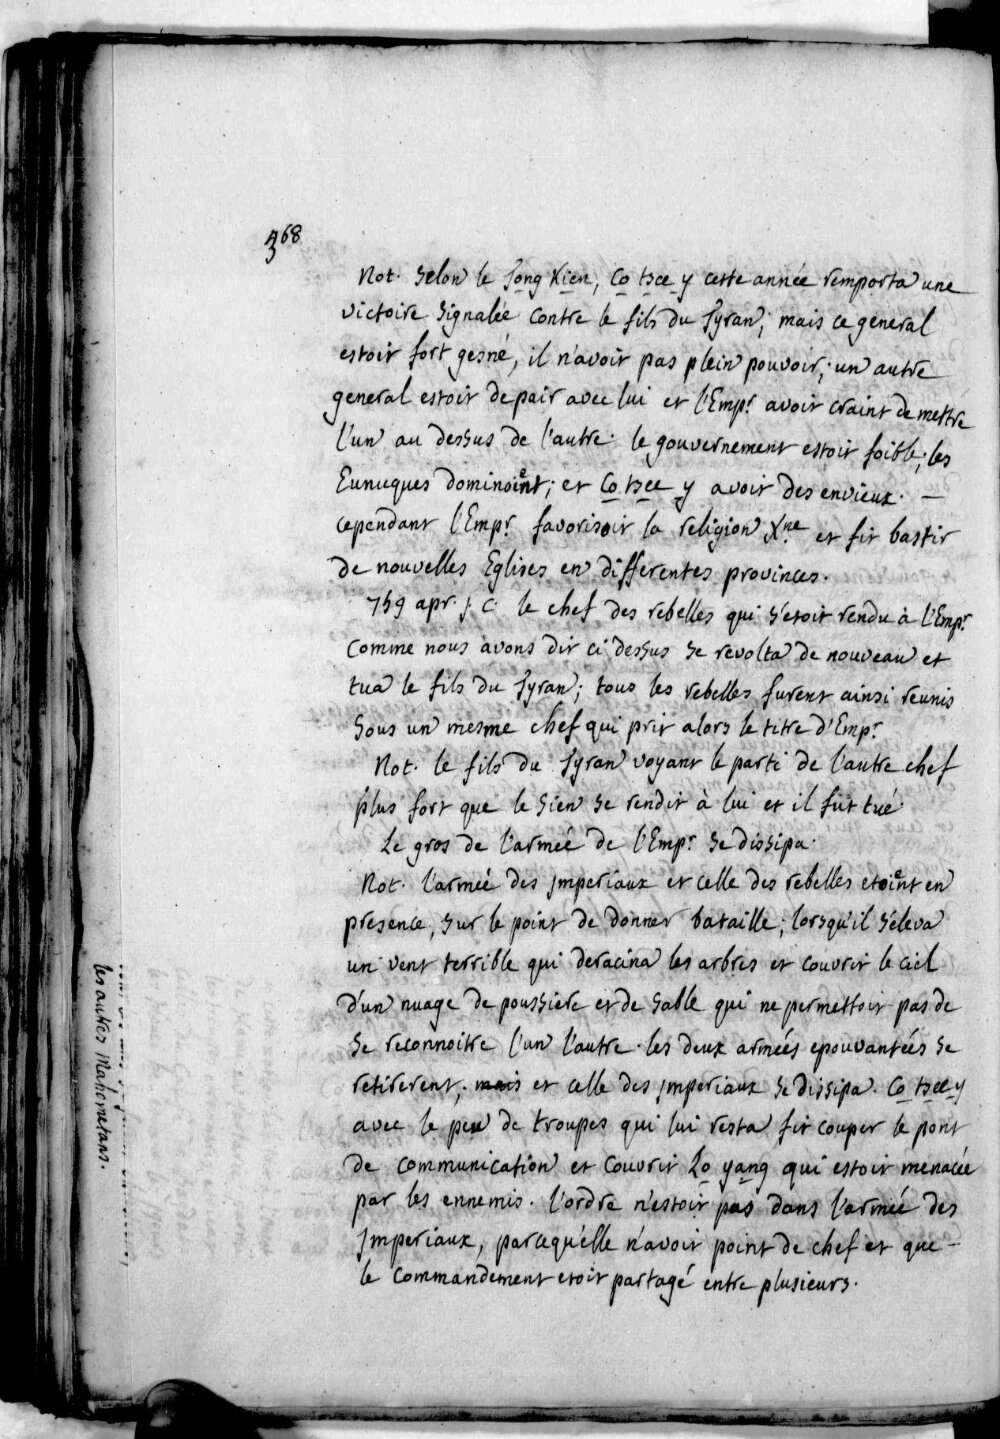 368
Not. Selon le Tong Kien, Co tsee y cette année remporta une
victoire signalée contre le fils du Tyran; mais ce general
estoit fort gesné, il n'avoit pas plein pouvoir; un autre
general estoit de pair avec lui et l'Empr. avoit craint de mettre
l'un au dessus de l'autre. le gouvernement estoit foible; les
Eunuques dominoient; et Co tsee y avoit des envieux. —
cependant l'Empr. favorisoit la religion Xne. et fit bastir
de nouvelles Eglises en differentes provinces.
759 apr. j. c. le chef des rebelles qui s'etoit rendu à l'Empr.
comme nous avons dit ci dessus se revolta de nouveau et
tua le fils du Tyran; tous les rebelles furent ainsi reunis
sous un mesme chef qui prit alors le titre d'Empr.
Not. le fils du Tyran voyant le parti de l'autre chef
plus fort que le sien se rendit à lui et il fut tué
Le gros de l'armée de l'Empr. se dissipa.
Not. l'armée des jmperiaux et celle des rebelles etoient en
presence, sur le point de donner bataille; lorsqu'il s'éleva
un vent terrible qui deracina les arbres et couvrit le ciel
d'un nuage de poussiere et de sable qui ne permettoit pas de
se reconnoitre l'un l'autre. les deux armées epouvantées se
retirerent; mais et celle des jmperiaux se dissipa. Co tsee y
avec le peu de troupes qui lui resta fit couper le pont
de communication et couvrit Lo yang qui estoit menacée
par les ennemis. l'ordre n'estoit pas dans l'armée des
jmperiaux, parcequ'elle n'avoit point de chef et que —
le commandement etoit partagé entre plusieurs.
les autres Mahometans.